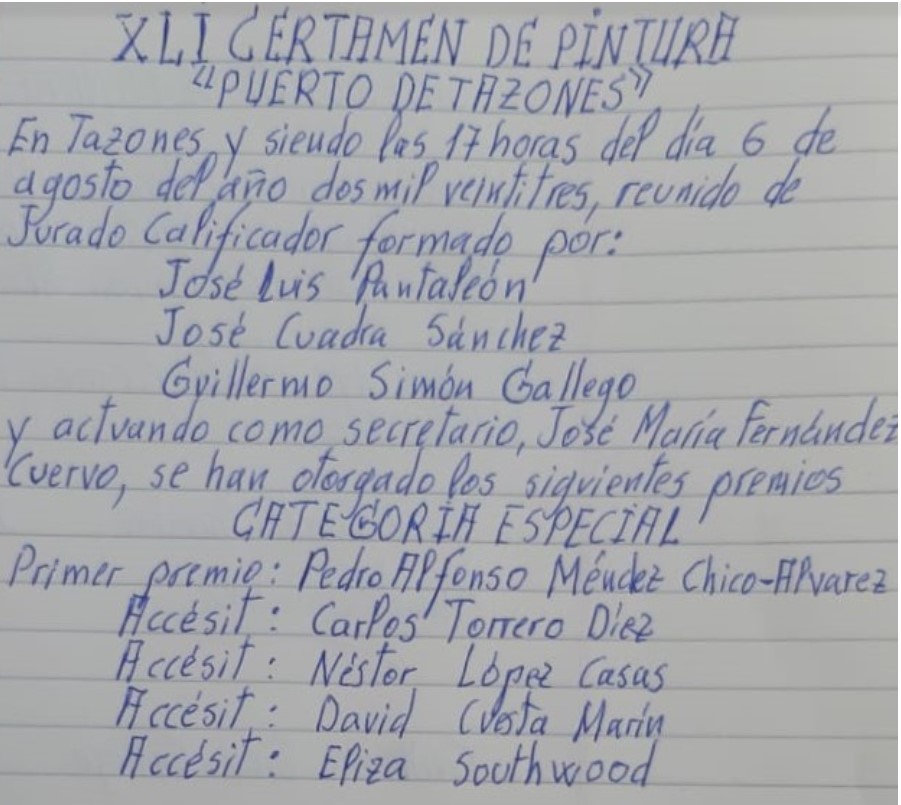 XLI CERTAMEN DE PINTURA
"PUERTO DE TAZONES"
En Tazones, y siendo las 17 horas del día 6 de
agosto del año dos mil veintitres, reunido de
Jurado Calificador formado por:
José Luis Pantaleón
José Cuadra Sánchez
Guillermo Simón Gallego
y actuando como secretario, José María Fernández
Cuervo, se han otorgado los siguientes premios
CATEGORIA ESPECIAL
Primer premio: Pedro Alfonso Méndez Chico-Alvarez
Accésit: Carlos Torrero Díez
Accésit: Néstor López Casas
Accésit: David Cuesta Marín
Accésit: Eliza Southwood